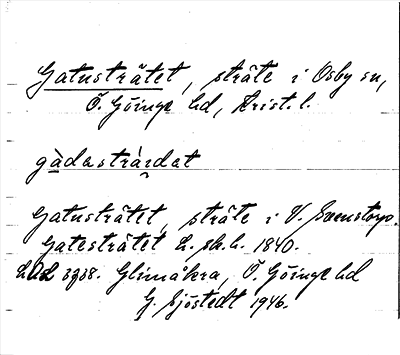 Gatusträtet, sträte i Osby sn,
Ö. Göinge hd, Krist. l.
gàdasträrdat
Gatusträtet, sträte i V. Svenstorp.
Gatesträtet L. sk. h. 1840.
LAL 3938. Glimåkra, Ö. Göinge hd
G. Sjöstedt 1946.